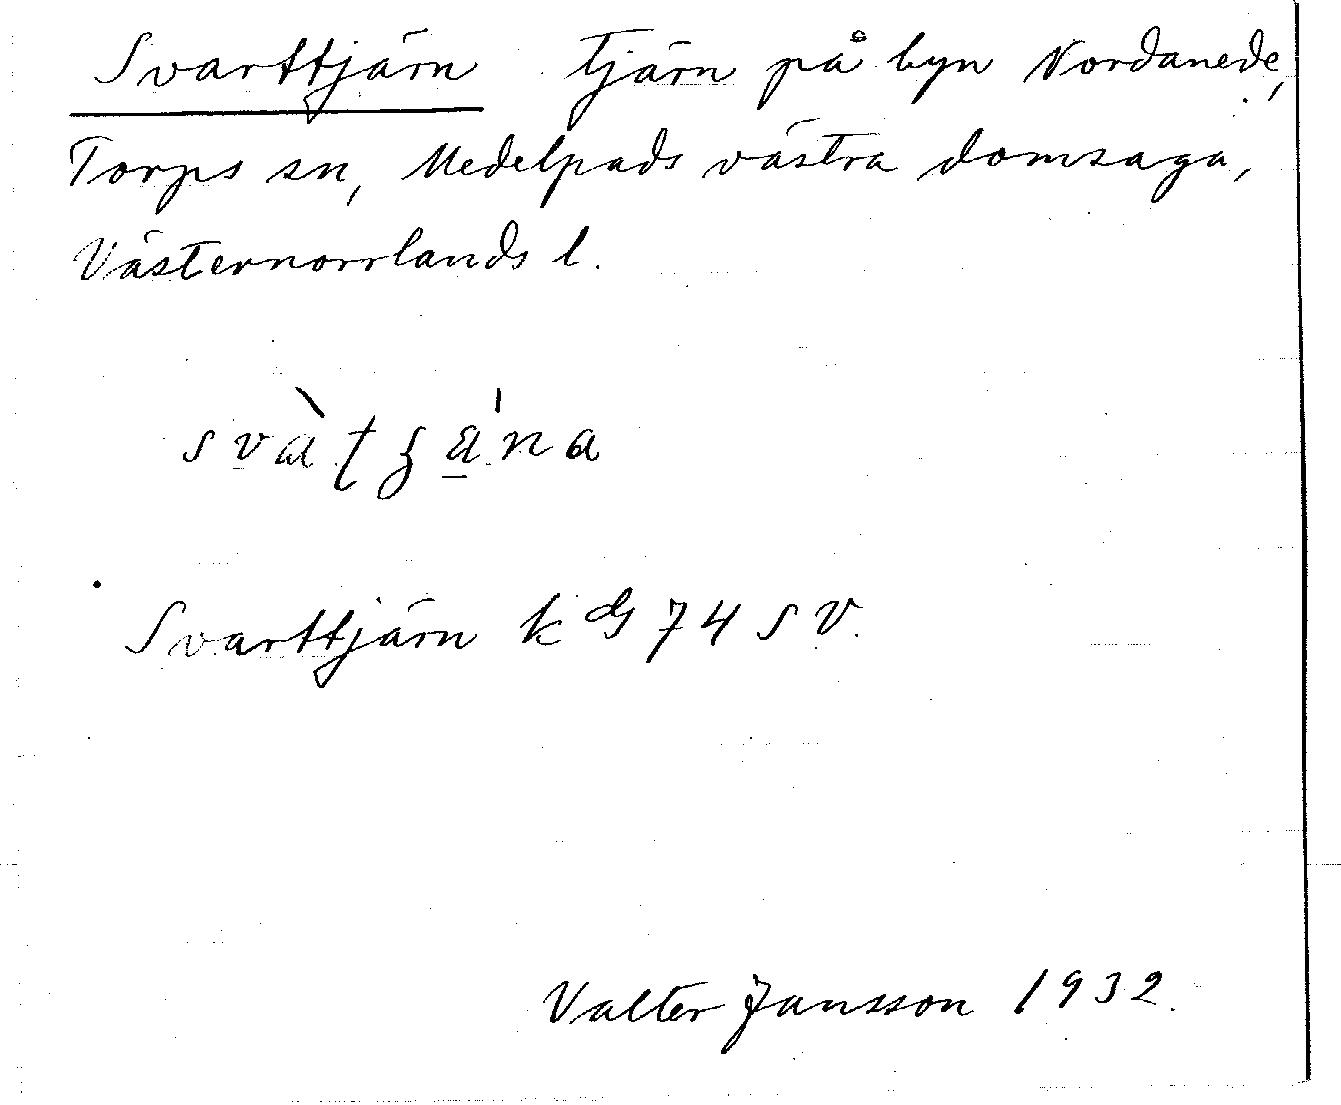 Svarttjärn Tjärn på byn Nordanede,
Torps sn, Medelpads västra domsaga,
Västernorrlands l.
Svarttjärn k ds 74 SV.
Valter Jansson 1932.